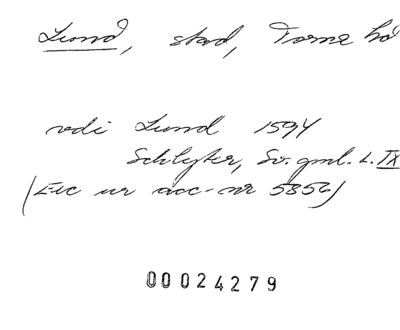 Lund, stad, Torna hd
vdi Lund 1594
Schlyter, Sv. gml. L. IX
(Exc ur acc-nr 5856)
00024279